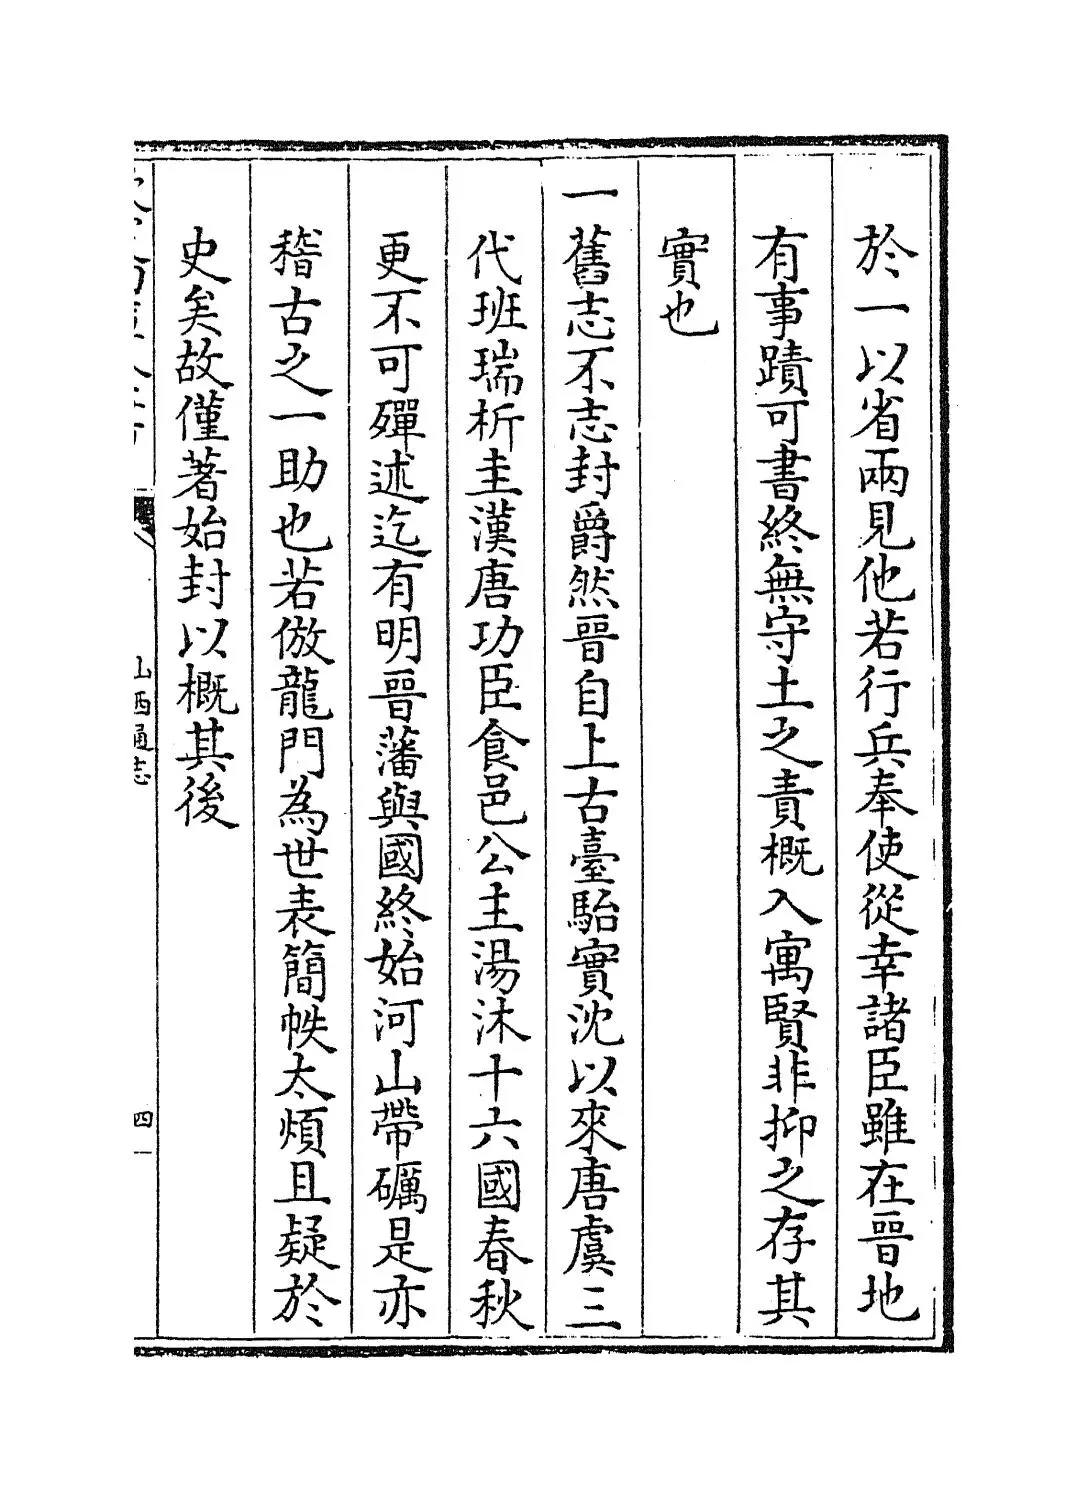 於一以省兩見他若行兵奉使從幸諸臣雖在晉地
有事蹟可書終無守土之責概入寓賢非抑之存其
實也
一舊志不志封爵然晉自上古臺駘實沈以來唐虞三
代班瑞析圭漢唐功臣食邑公主湯沐十六國春秋
更不可殫述迄有明晉藩與國終始河山帶礪是亦
稽古之一助也若倣龍門為世表簡帙太煩且疑於
史矣故僅著始封以概其後
山西通志
四